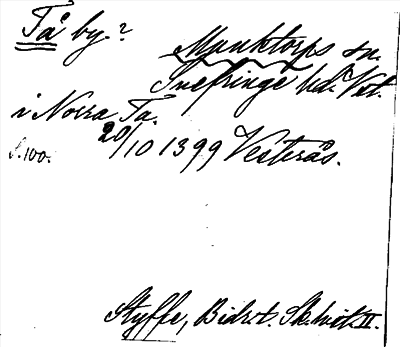 Tå by? Munktorps sn.
Snefringe hd. Vstm.
i Norra Ta.
S. 100. 20/10 1399 Vesterås.
Styffe, Bidr. t. Sk. hist. II.